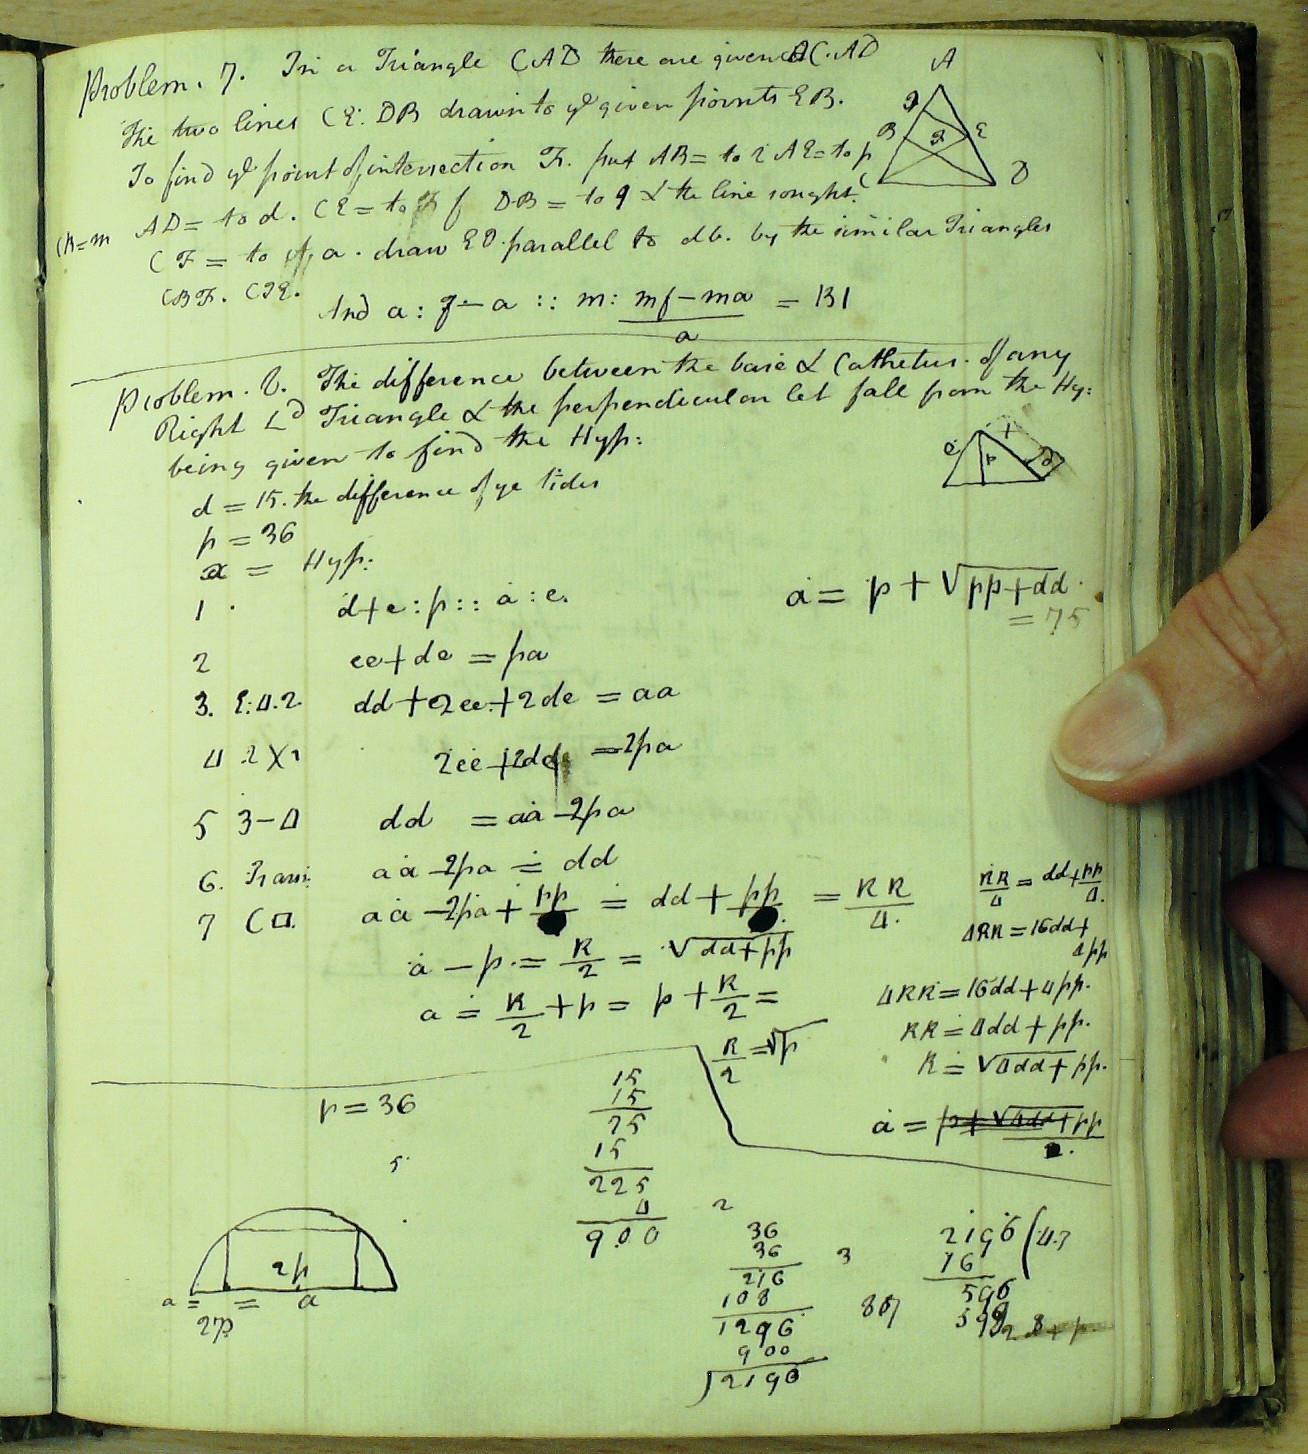 Problem. 7. In a Triangle CAD there are given AC. AD
The two lines CE: DB drawn to ye given points EB.
To find ye point of intersection F. put AB = to AE = to p
AD = to d. CE = to f DB = to q & the line sought.
CB = m
CF = to a. draw EI parallel to db. by the similar Triangles
CBF. CIE.
And a : f - a :: m : mf - ma / a = BI
A
B
E
C
D
Problem. 8. The difference between the base & Cathetus. of any
Right Ld Triangle & the perpendicular let fall from the Hy:
being given to find the Hyp:
d = 15. the difference of ye sides
p = 36
a = Hyp:
a = p + √pp+dd.
= 75
1. d+e : p :: a : e.
2 ee+de = pa
3. dd+2ee+2de = aa
4 2X 2ee+2de = 2pa
5 3-4 dd = aa - 2pa
6. Trans: aa - 2pa = dd
7 C□. aa - 2pa + pp = dd + pp = RR/4.
RR/4 = dd+pp/4.
4RR = 16dd+
4pp
a - p. = R/2 = √dd+pp
a = R/2 + p = p + R/2 =
4RR = 16dd + 4pp.
RR = 4dd + pp.
R = √4dd + pp.
R/2 = √p
a = p + √4dd+pp / 2.
p = 36
5
15
15
75
15
225
4
900
2
36
36
216
108
1296
900
2196
3
87
2196 (4.7
16
596
2p
a = = a
2p